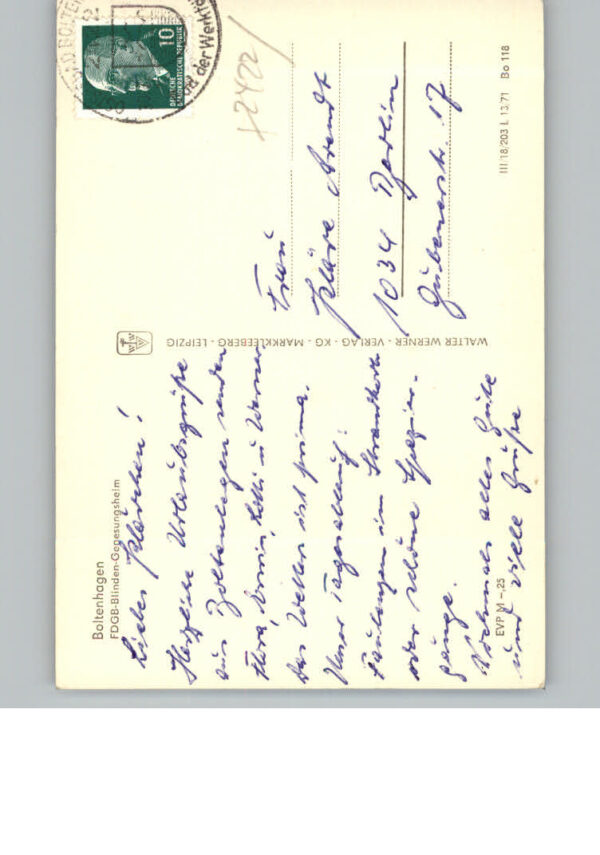 Boltenhagen
FDGB-Blinden-Gegesungsheim
Liebes Klärchen!
Herzliche Urlaubsgrüße
aus Boltenhagen senden
Flora, Erwin, Lotti u. Werner.
Das Wetter ist prima.
Unser Tagesablauf:
Faulenzen im Strandkorb
oder schöne Spazier-
gänge.
Nochmals alles Gute
und viele Grüße
EVP M -,25
WALTER WERNER · VERLAG · KG · MARKKLEEBERG · LEIPZIG
der Werktä
10
DEUTSCHE
DEMOKRATISCHE REPUBLIK
+2422/
Frau
Kläre Arendt
1034 Berlin
Gubenerstr. 17
III/18/203 L 13.71 Bo 118